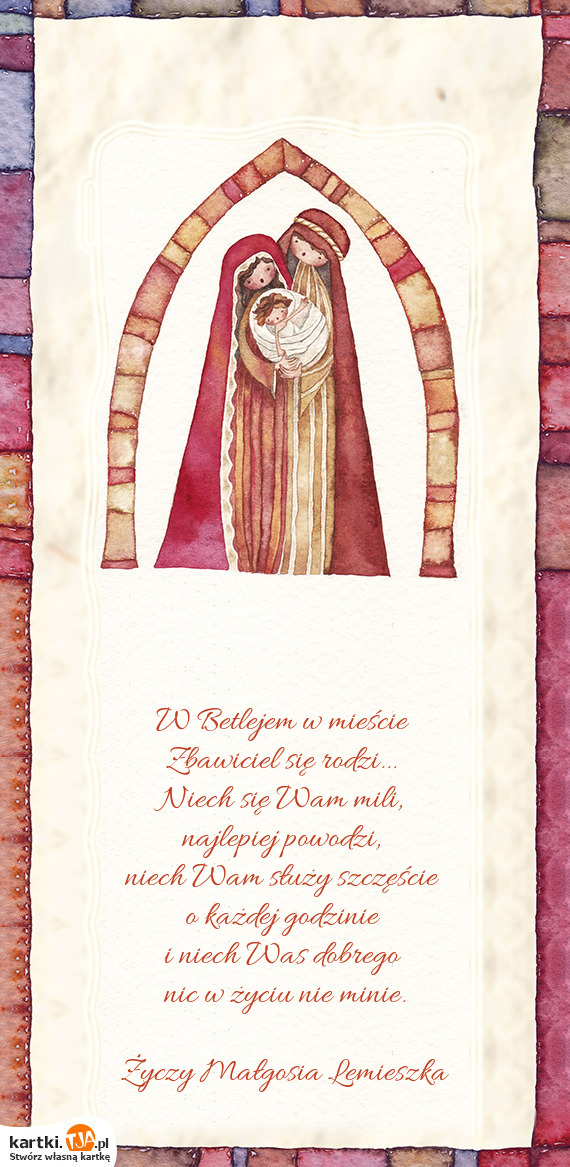 W Betlejem w mieście
Zbawiciel się rodzi...
Niech się Wam mili,
najlepiej powodzi,
niech Wam służy szczęście
o każdej godzinie
i niech Was dobrego
nic w życiu nie minie.
Życzy Małgosia Lemieszka
kartki.TJA.pl
Stwórz własną kartkę